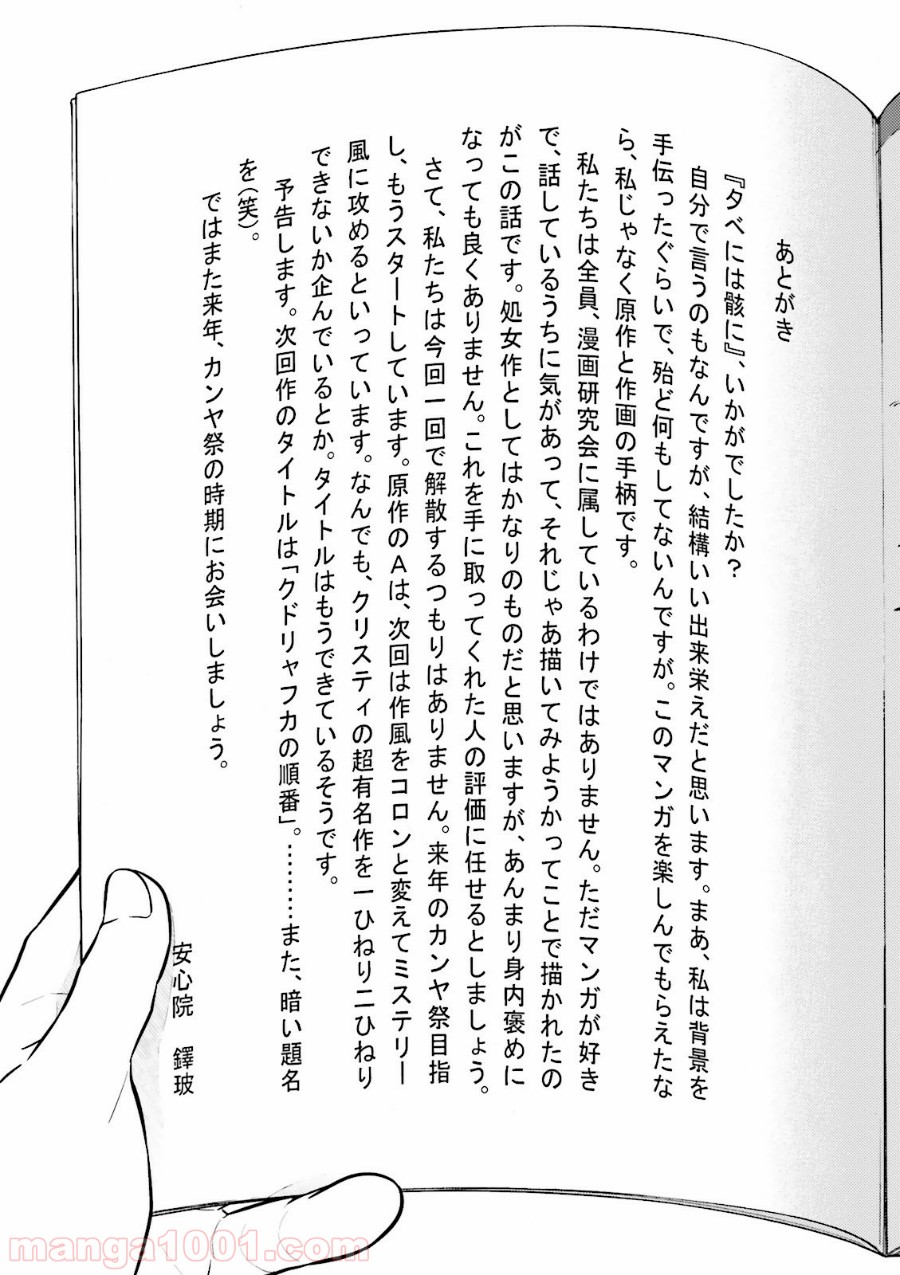 あとがき
『夕べには骸に』、いかがでしたか?
自分で言うのもなんですが、結構いい出来栄えだと思います。まあ、私は背景を
手伝ったぐらいで、殆ど何もしてないんですが。このマンガを楽しんでもらえたな
ら、私じゃなく原作と作画の手柄です。
私たちは全員、漫画研究会に属しているわけではありません。ただマンガが好き
で、話しているうちに気があって、それじゃあ描いてみようかってことで描かれたの
がこの話です。処女作としてはかなりのものだと思いますが、あんまり身内褒めに
なっても良くありません。これを手に取ってくれた人の評価に任せるとしましょう。
さて、私たちは今回一回で解散するつもりはありません。来年のカンヤ祭目指
し、もうスタートしています。原作のAは、次回は作風をコロンと変えてミステリー
風に攻めるといっています。なんでも、クリスティの超有名作を一ひねり二ひねり
できないか企んでいるとか。タイトルはもうできているそうです。
予告します。次回作のタイトルは「クドリャフカの順番」。………また、暗い題名
を(笑)。
ではまた来年、カンヤ祭の時期にお会いしましょう。
安心院 鐸玻
manga1001.com